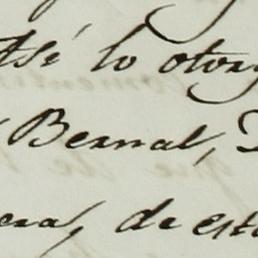 Así lo otorg
Bernal,
era, de est